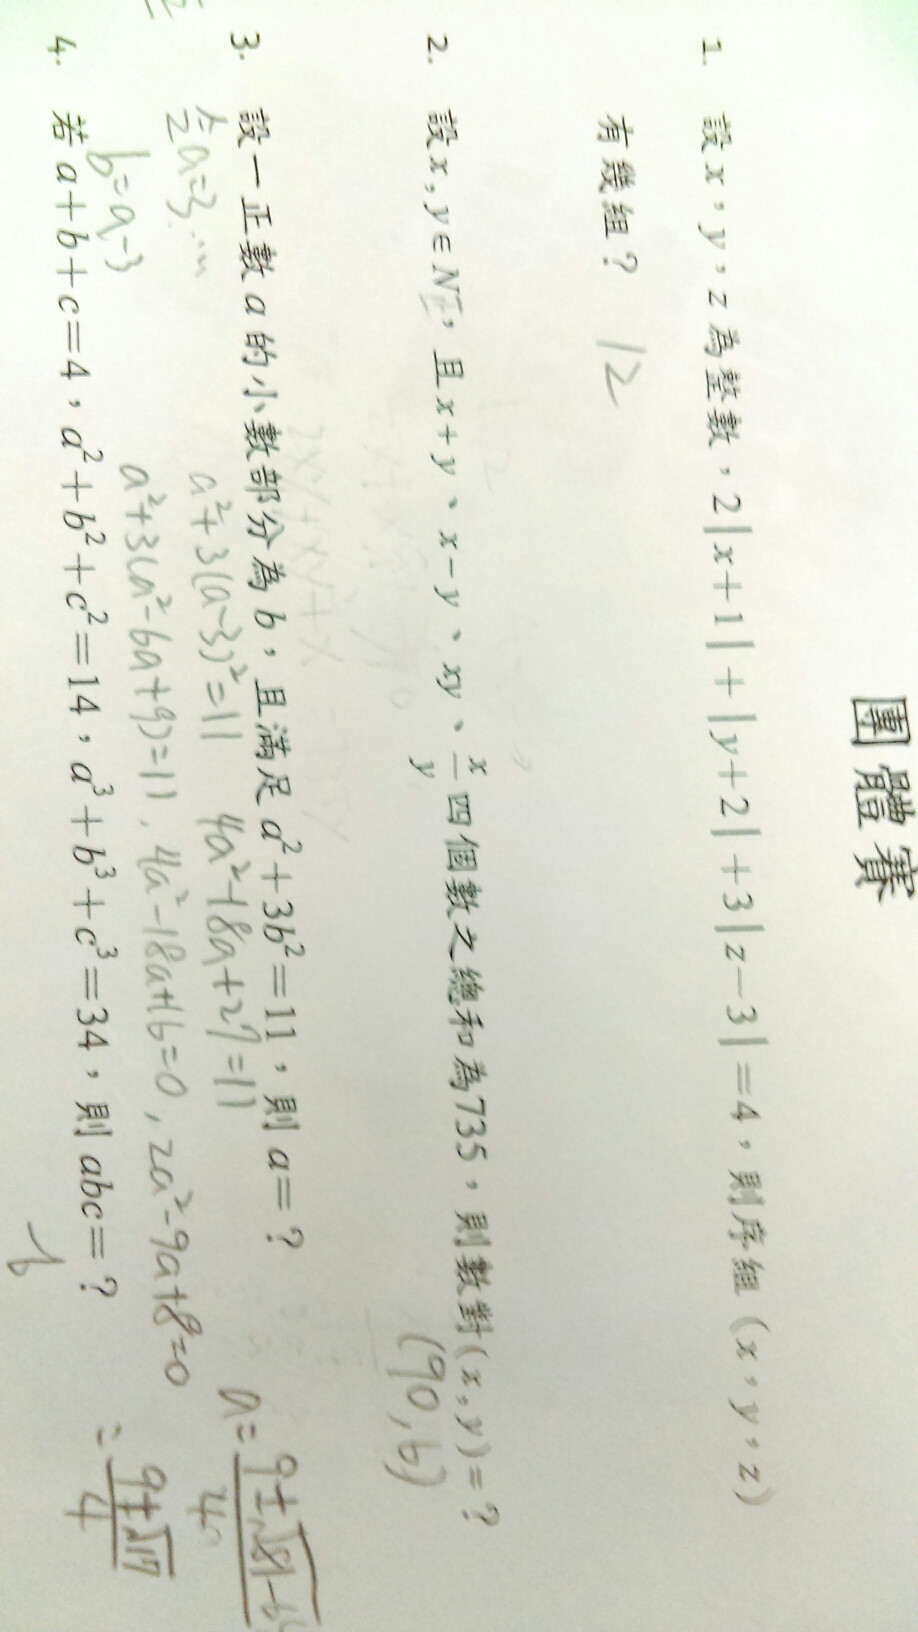 團體賽
1. 設x,y,z為整數,2|x+1|+|y+2|+3|z-3|=4,則序組(x,y,z)
有幾組? 12
2. 設x,y∈N,且x+y、x-y、xy、x/y四個數之總和為735,則數對(x,y)=?
(90,6)
3. 設一正數a的小數部分為b,且滿足a²+3b²=11,則a=?
a=3...
b=a-3
a²+3(a-3)²=11 4a²-18a+27=11
a²+3(a²-6a+9)=11, 4a²-18a+16=0, 2a²-9a+8=0
a=
=(9±√17)/4
4. 若a+b+c=4,a²+b²+c²=14,a³+b³+c³=34,則abc=?
-6